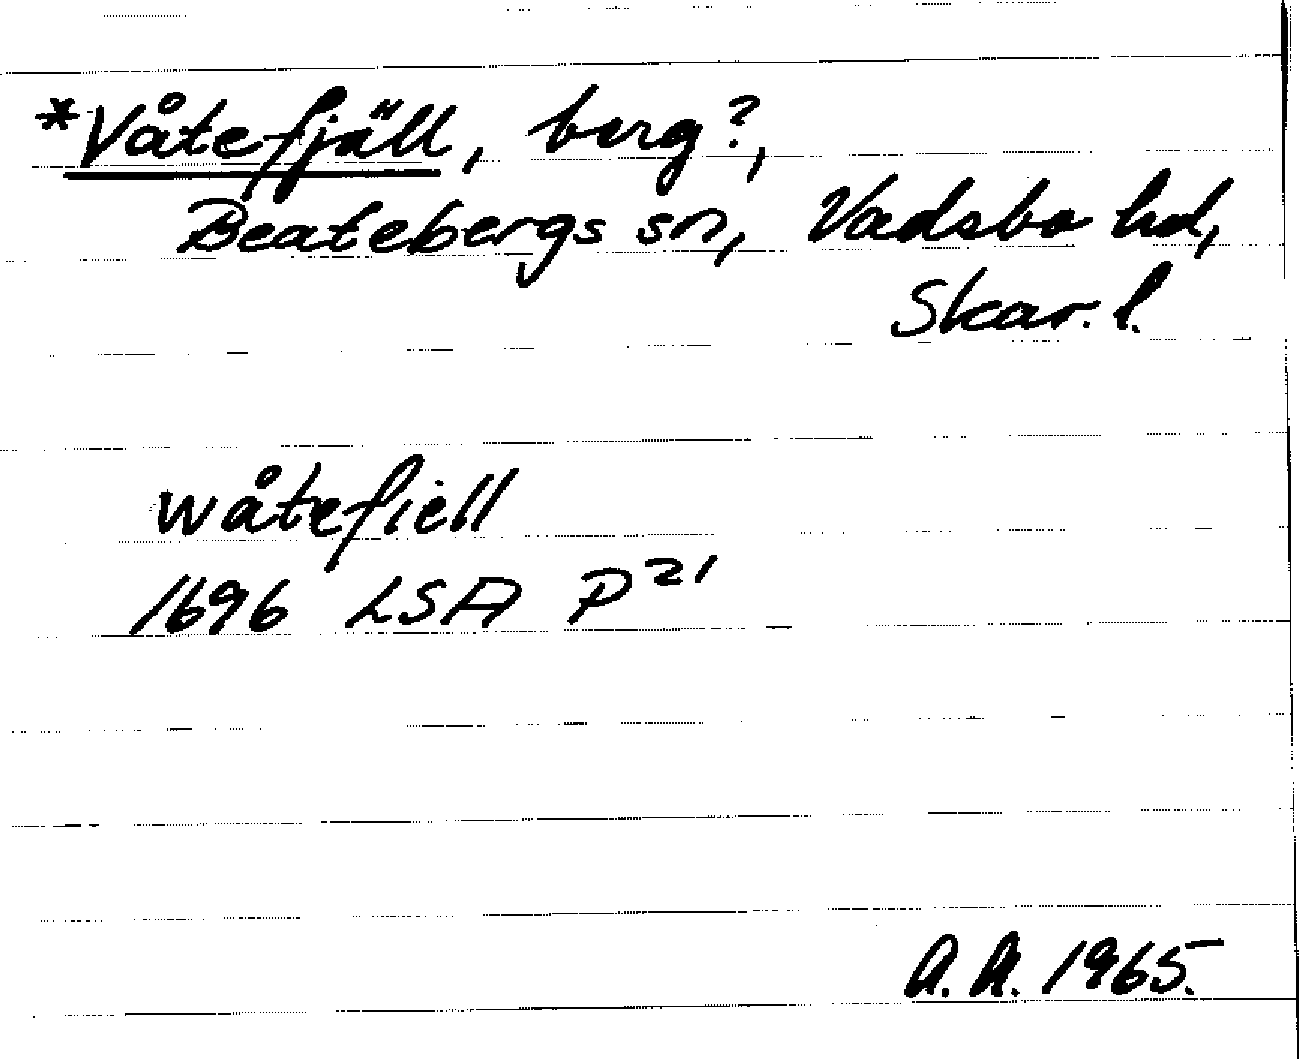 *Våtefjäll, berg?,
Beatebergs sn, Vadsbo hd,
Skar. l.
wåtefiell
1696 LSA P21
A. A. 1965.